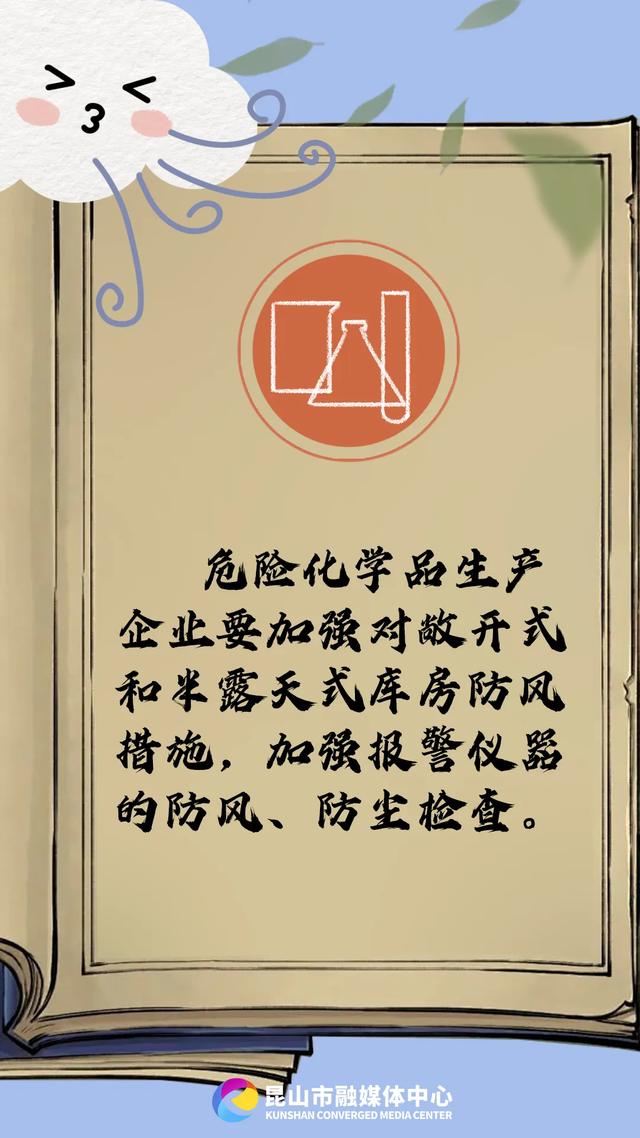 危险化学品生产
企业要加强对敞开式
和半露天式库房防风
措施，加强报警仪器
的防风、防尘检查。
昆山市融媒体中心
KUNSHAN CONVERGED MEDIA CENTER